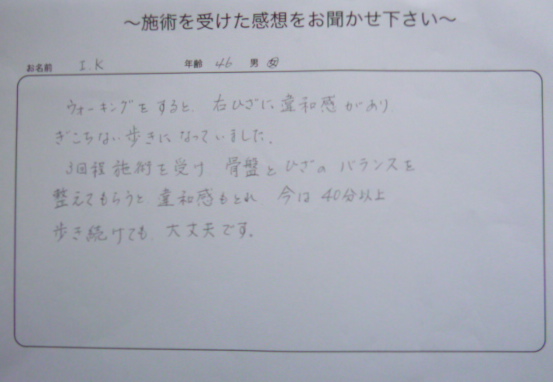 ～施術を受けた感想をお聞かせ下さい～
お名前 I.K 年齢 46 男 女
ウォーキングをすると、右ひざに違和感があり
ぎこちない歩きになっていました。
3回程施術を受け 骨盤とひざのバランスを
整えてもらうと違和感もとれ 今は40分以上
歩き続けても大丈夫です。